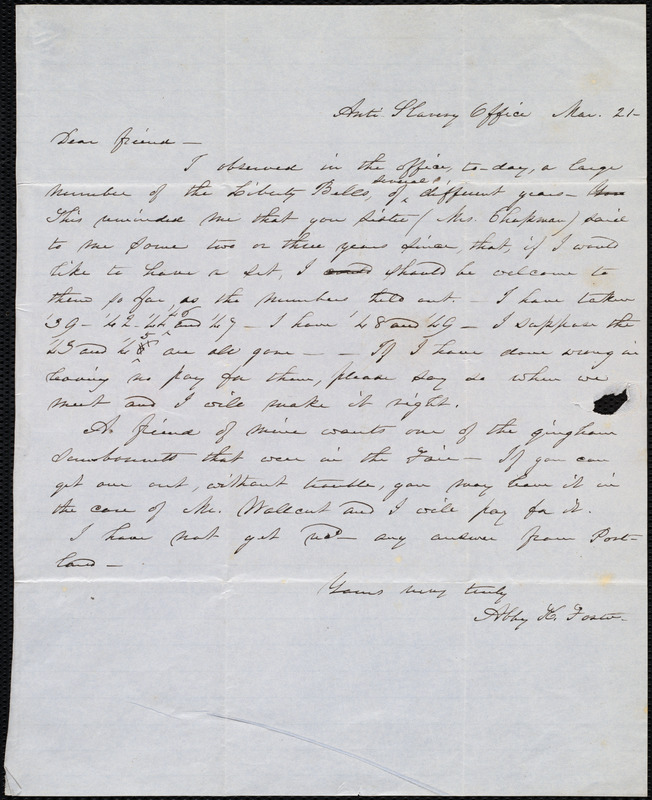 Anti Slavery Office Mar. 21-
Dear friend -
I observed in the office, to-day, a large
number of the Liberty Bells, several, of different years -
This reminded me that you sister (Mrs. Chapman) said
to me some two or three years since, that, if I would
like to have a set, I could should be welcome to
them so far, as the numbers held out. - I have taken
'39 - '42 - '44 '46 and '47 - I have '48 and '49 - I suppose the
'43 and '45 are all gone - - If I have done wrong in
leaving no pay for them, please say so when we
meet and I will make it right.
A friend of mine wants one of the gingham
sunbonnetts that were in the Fair - If you can
get one out, without trouble, you may leave it in
the care of Mr. Wallcut and I will pay for it.
I have not get any answer from Port-
land -
Yours very truly
Abby K. Foster -